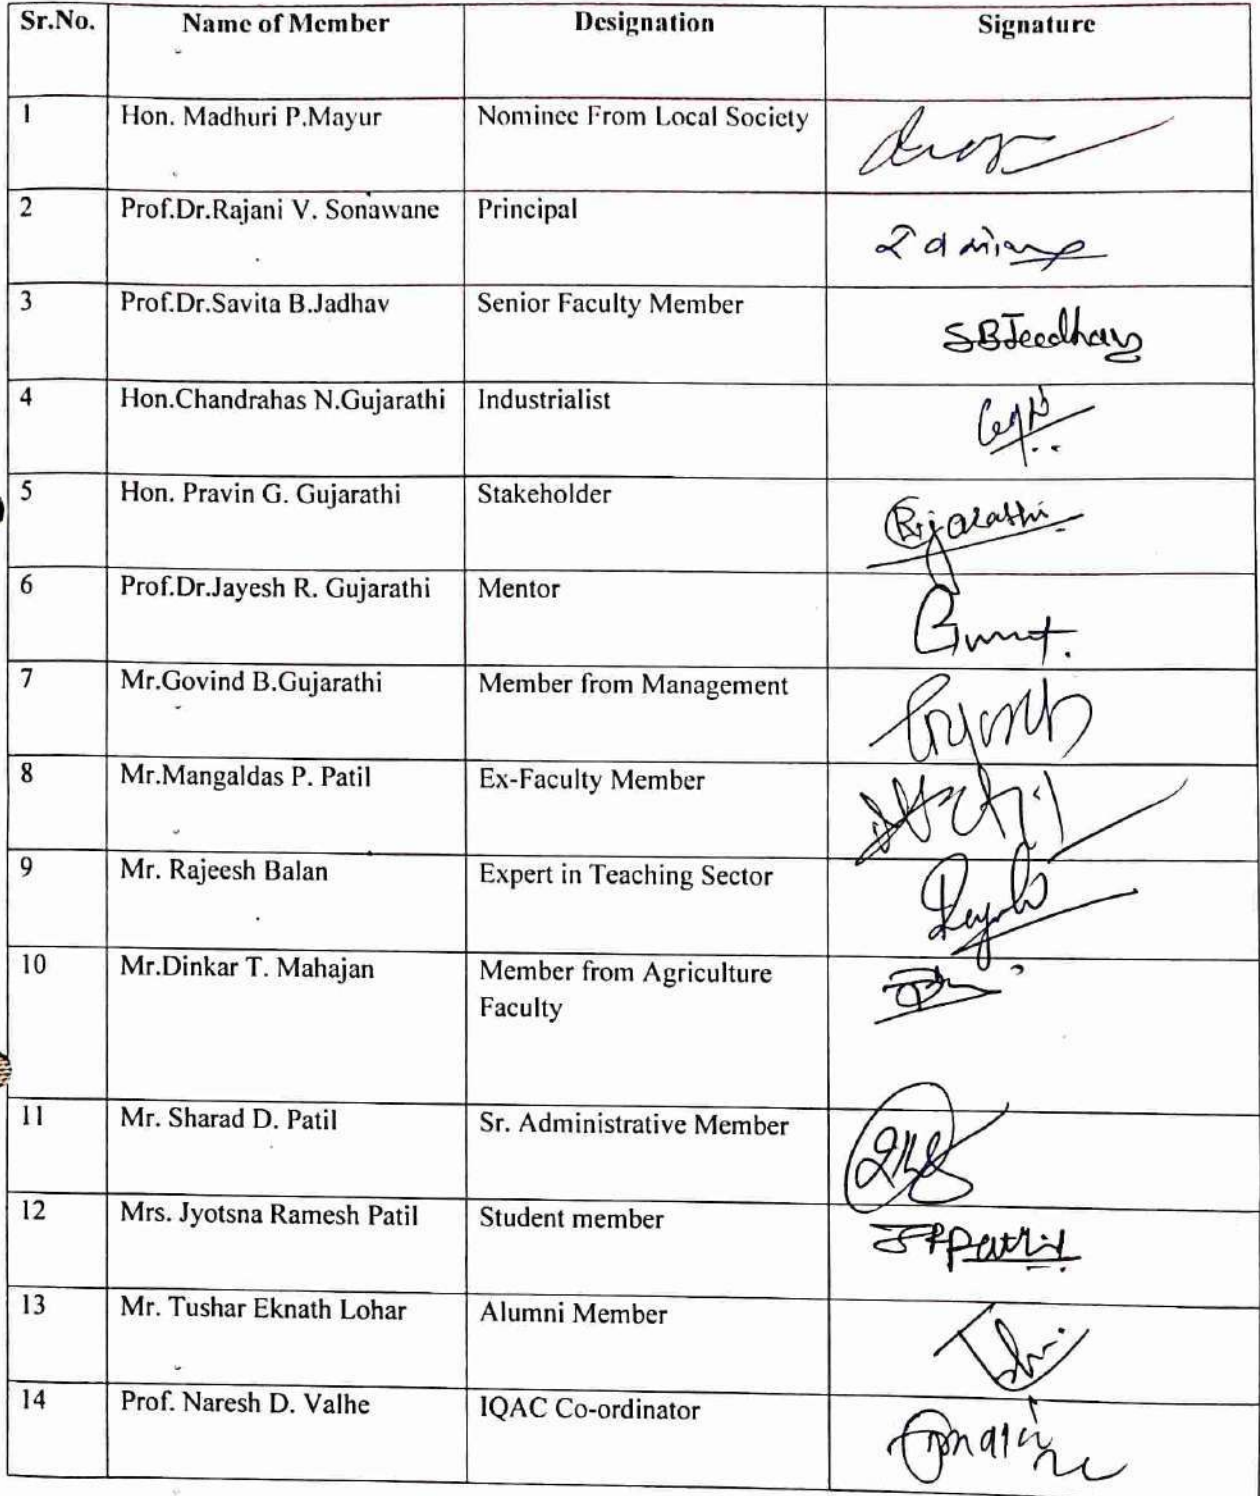 Sr.No. Name of Member Designation Signature
1 Hon. Madhuri P.Mayur Nominee From Local Society
2 Prof.Dr.Rajani V. Sonawane Principal
3 Prof.Dr.Savita B.Jadhav Senior Faculty Member SBJadhav
4 Hon.Chandrahas N.Gujarathi Industrialist
5 Hon. Pravin G. Gujarathi Stakeholder
6 Prof.Dr.Jayesh R. Gujarathi Mentor
7 Mr.Govind B.Gujarathi Member from Management
8 Mr.Mangaldas P. Patil Ex-Faculty Member
9 Mr. Rajeesh Balan Expert in Teaching Sector
10 Mr.Dinkar T. Mahajan Member from Agriculture
Faculty
11 Mr. Sharad D. Patil Sr. Administrative Member
12 Mrs. Jyotsna Ramesh Patil Student member JRPatil
13 Mr. Tushar Eknath Lohar Alumni Member
14 Prof. Naresh D. Valhe IQAC Co-ordinator